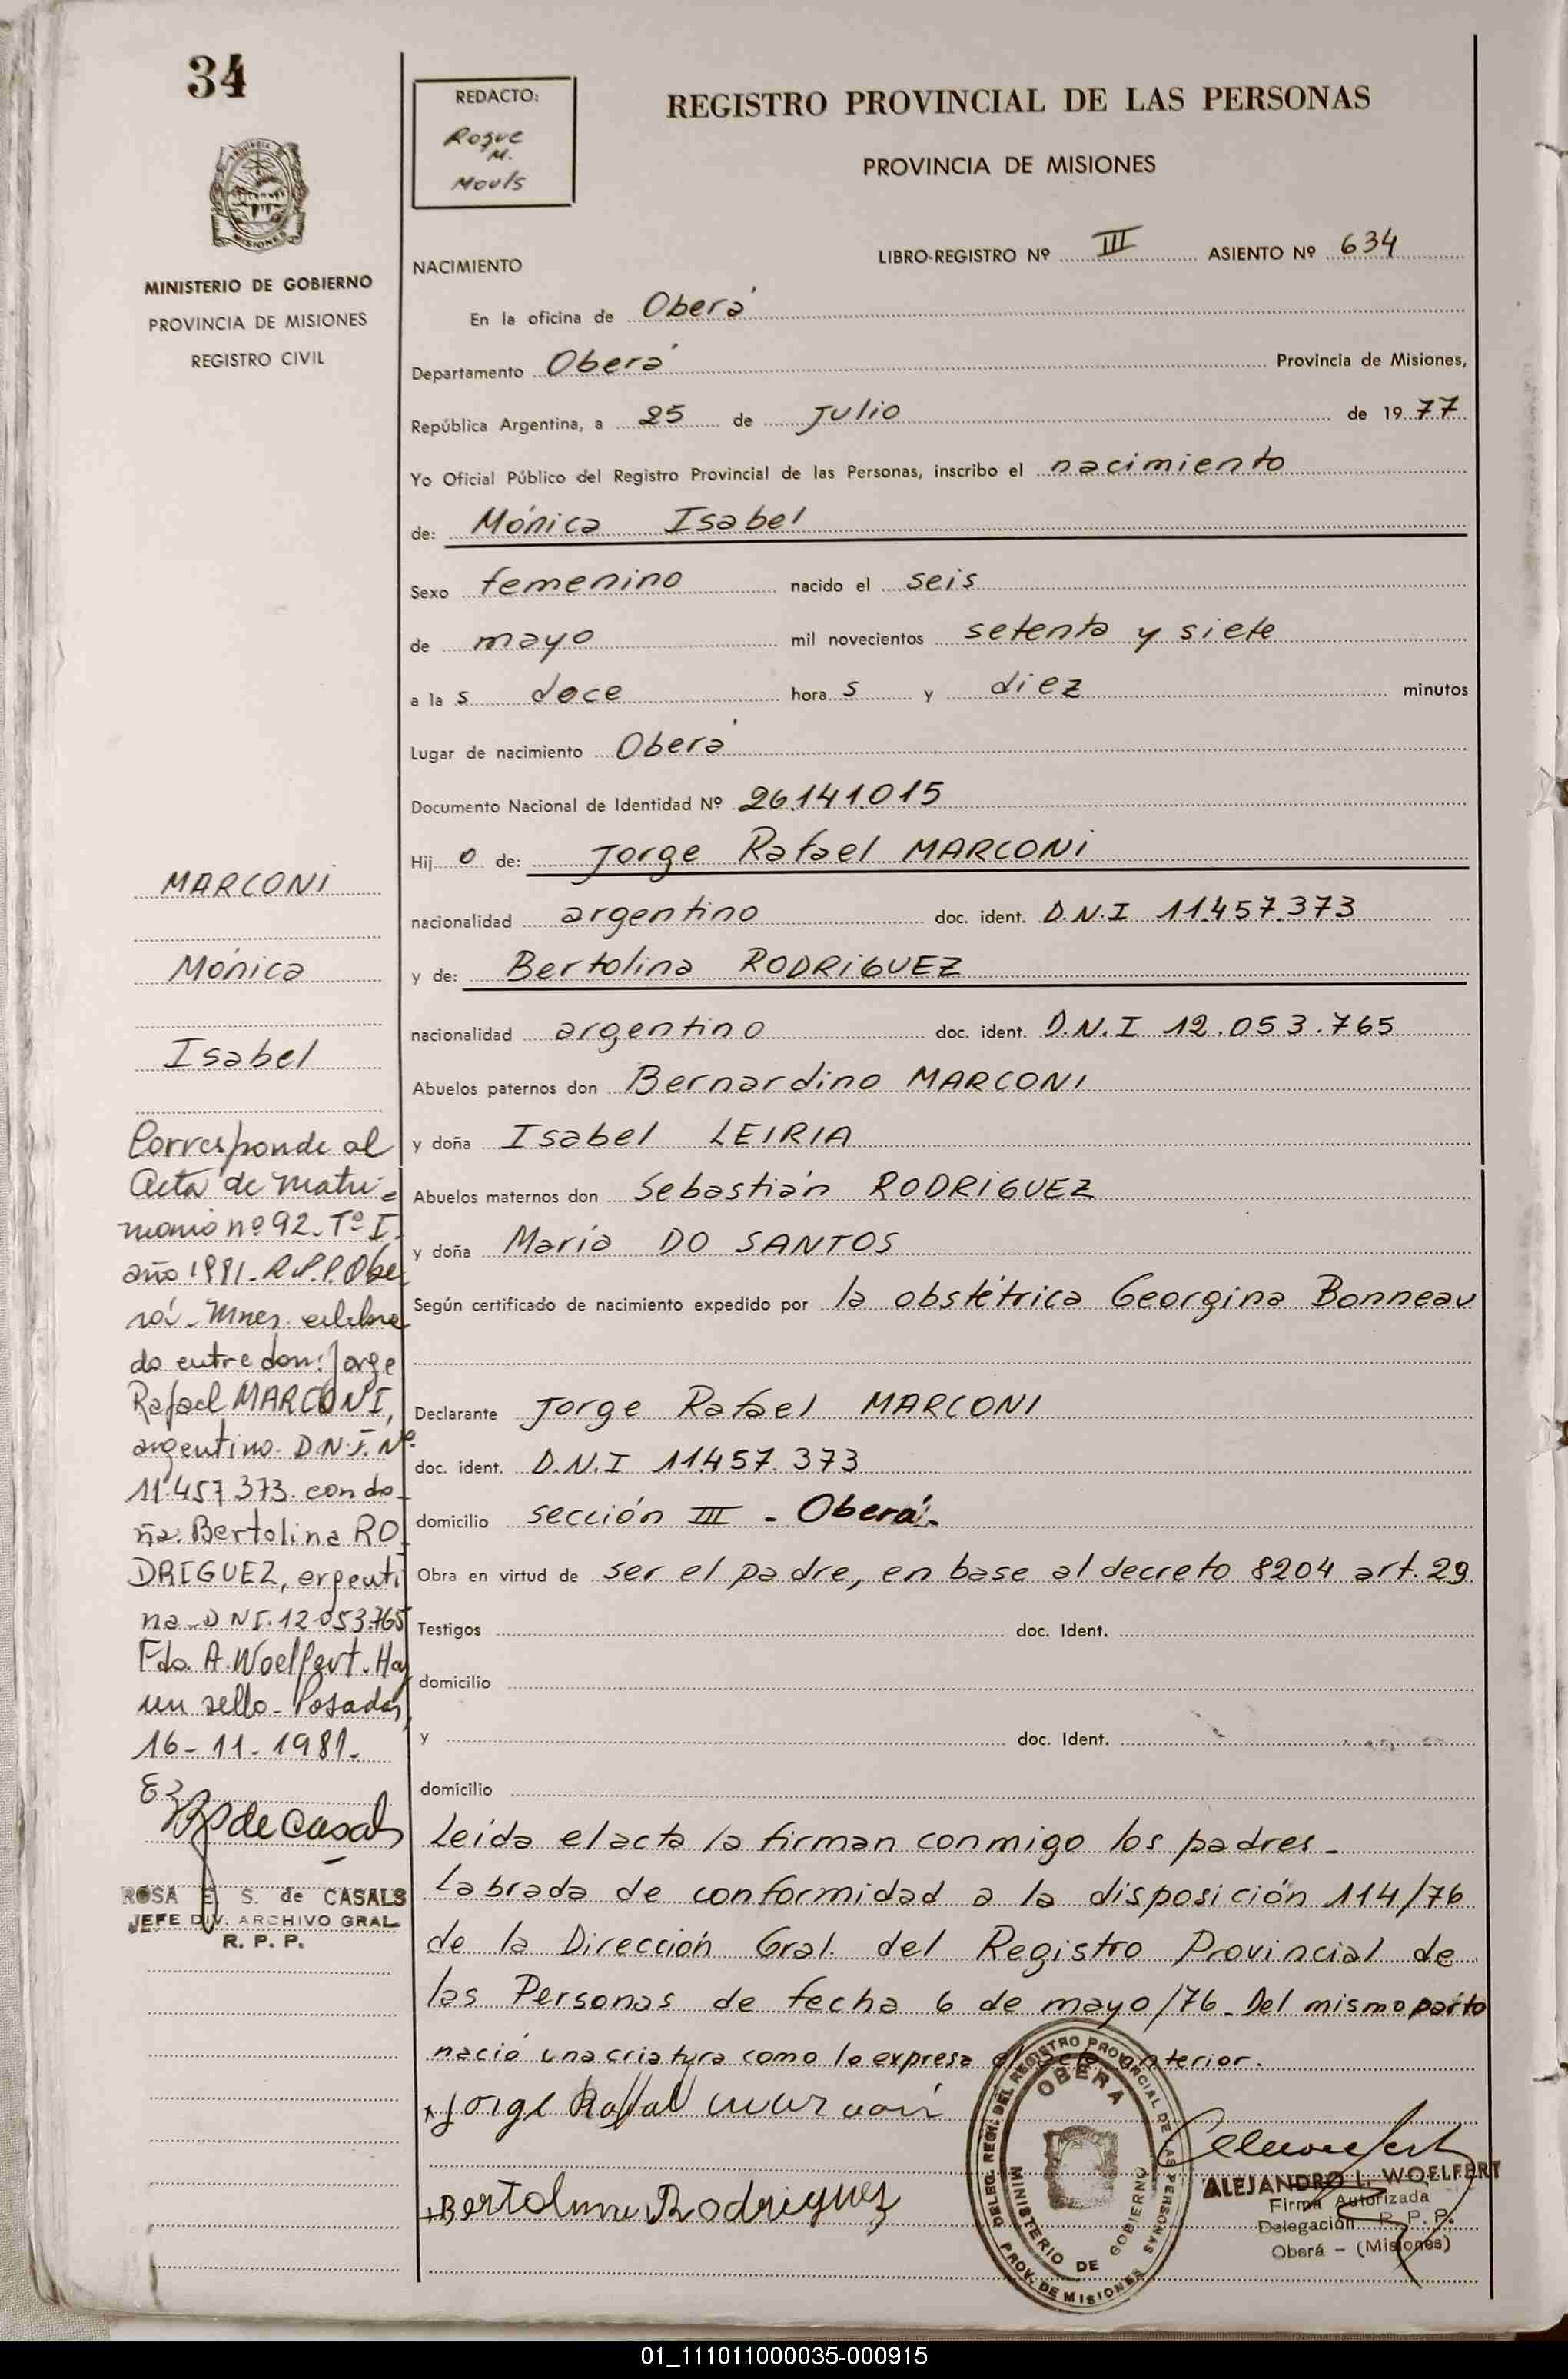 34
REDACTO:
Roque
M.
Mouls
REGISTRO PROVINCIAL DE LAS PERSONAS
PROVINCIA DE MISIONES
MINISTERIO DE GOBIERNO
PROVINCIA DE MISIONES
REGISTRO CIVIL
LIBRO-REGISTRO Nº III ASIENTO Nº 634
NACIMIENTO
En la oficina de Oberá
Departamento Oberá Provincia de Misiones,
República Argentina, a 25 de Julio de 1977
Yo Oficial Público del Registro Provincial de las Personas, inscribo el nacimiento
de: Mónica Isabel
Sexo femenino nacido el seis
de mayo mil novecientos setenta y siete
a las doce horas y diez minutos
Lugar de nacimiento Oberá
Documento Nacional de Identidad Nº 26.141.015
Hijo de: Jorge Rafael MARCONI
nacionalidad argentino doc. ident. D.N.I 11.457.373
y de: Bertolina RODRIGUEZ
nacionalidad argentino doc. ident. D.N.I 12.053.765
Abuelos paternos don Bernardino MARCONI
y doña Isabel LEIRIA
Abuelos maternos don Sebastián RODRIGUEZ
y doña María DO SANTOS
Según certificado de nacimiento expedido por la obstétrica Georgina Bonneau
Declarante Jorge Rafael MARCONI
doc. ident. D.N.I 11.457.373
domicilio sección III - Oberá.-
Obra en virtud de ser el padre, en base al decreto 8204 art. 29
Testigos doc. Ident.
domicilio
y doc. Ident.
domicilio
Leída el acta la firman conmigo los padres.-
Labrada de conformidad a la disposición 114/76
de la Dirección Gral. del Registro Provincial de
las Personas de fecha 6 de mayo/76. Del mismo parto
nació una criatura como lo expresa el acta anterior.
x Jorge Rafael marconi
x Bertolina Rodriguez
MARCONI
Mónica
Isabel
Corresponde al
Acta de Matri-
monio nº 92. Tº I.
año 1981. R.P.P. Obe
rá. Mnes. celebra
do entre don: Jorge
Rafael MARCONI,
argentino. D.N.I. Nº
11.457.373. con do-
ña: Bertolina RO
DRIGUEZ, argenti
na. DNI. 12.053.765
Fdo. A. Woelfert. Hay
un sello. Posadas,
16-11-1981.
de Casals
ROSA E. S. de CASALS
JEFE DIV. ARCHIVO GRAL.
R. P. P.
DELEG. REGI. DEL REGISTRO PROVINCIAL DE LAS PERSONAS
OBERA
MINISTERIO DE GOBIERNO
PROV. DE MISIONES
ALEJANDRO L. WOELFERT
Firma Autorizada
Delegación R. P. P.
Oberá - (Misiones)
01_111011000035-000915